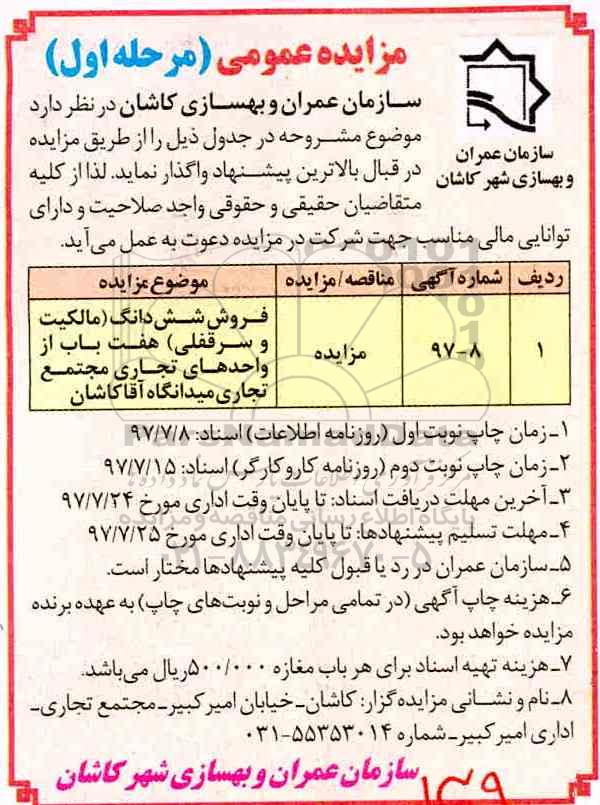 مزایده عمومی (مرحله اول)
سازمان عمران
و بهسازی شهر کاشان
سازمان عمران و بهسازی کاشان در نظر دارد
موضوع مشروحه در جدول ذیل را از طریق مزایده
در قبال بالاترین پیشنهاد واگذار نماید. لذا از کلیه
متقاضیان حقیقی و حقوقی واجد صلاحیت و دارای
توانایی مالی مناسب جهت شرکت در مزایده دعوت به عمل می‌آید.
ردیف شماره آگهی مناقصه/مزایده موضوع مزایده
۱ ۹۷-۸ مزایده فروش شش دانگ (مالکیت
و سرقفلی) هفت باب از
واحدهای تجاری مجتمع
تجاری میدانگاه آقا کاشان
۱ـ زمان چاپ نوبت اول (روزنامه اطلاعات) اسناد: ۹۷/۷/۸
۲ـ زمان چاپ نوبت دوم (روزنامه کار و کارگر) اسناد: ۹۷/۷/۱۵
۳ـ آخرین مهلت دریافت اسناد: تا پایان وقت اداری مورخ ۹۷/۷/۲۴
۴ـ مهلت تسلیم پیشنهادها: تا پایان وقت اداری مورخ ۹۷/۷/۲۵
۵ـ سازمان عمران در رد یا قبول کلیه پیشنهادها مختار است.
۶ـ هزینه چاپ آگهی (در تمامی مراحل و نوبت‌های چاپ) به عهده برنده
مزایده خواهد بود.
۷ـ هزینه تهیه اسناد برای هر باب مغازه ۵۰۰/۰۰۰ ریال می‌باشد.
۸ـ نام و نشانی مزایده‌گزار: کاشان ـ خیابان امیرکبیر ـ مجتمع تجاری ـ
اداری امیرکبیر ـ شماره ۵۵۳۵۳۰۱۴-۰۳۱
سازمان عمران و بهسازی شهر کاشان
۱۴۹
ParsNamadData
پایگاه اطلاع رسانی مناقصه و مزایده
۰۲۱-۸۸۳۴۹۶۷۰-۵